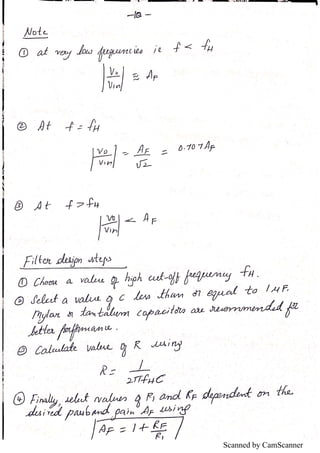 -10-
Note
① at very low frequencies ie f < fH
|Vo/Vin| ≅ AF
② At f = fH
|Vo/Vin| = AF/√2 = 0.707 AF
③ At f > fH
|Vo/Vin| < AF
Filter design steps
① Choose a value of high cut-off frequency fH.
② Select a value of C less than or equal to 1 μF.
Mylar or tantalum capacitors are recommended for
better performance.
③ Calculate value of R using
R = 1/2πfHC
④ Finally, select values of R1 and RF dependent on the
desired passband gain AF using
AF = 1 + RF/R1
Scanned by CamScanner